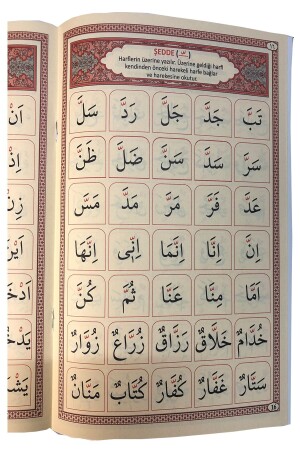 ŞEDDE ( ـّ )
Harflerin üzerine yazılır. Üzerine geldiği harfi
kendinden önceki harekeli harfe bağlar
ve harekesine okutur.
تَبَّ جَدَّ جَلَّ رَدَّ سَلَّ
سَرَّ سَدَّ سَنَّ ضَلَّ ظَنَّ
عَدَّ فَرَّ مَرَّ مَدَّ مَسَّ
اِنَّ اِنَّا اِنَّمَا اِنّٖى اِنَّهَا
اَمَّا مِنَّا عَنَّا ثُمَّ كُنَّ
خُدَّامٌ خَلَّاقٌ رَزَّاقٌ زُرَّاعٌ زُوَّارٌ
سَتَّارٌ غَفَّارٌ كُفَّارٌ كُتَّابٌ مَنَّانٌ
16